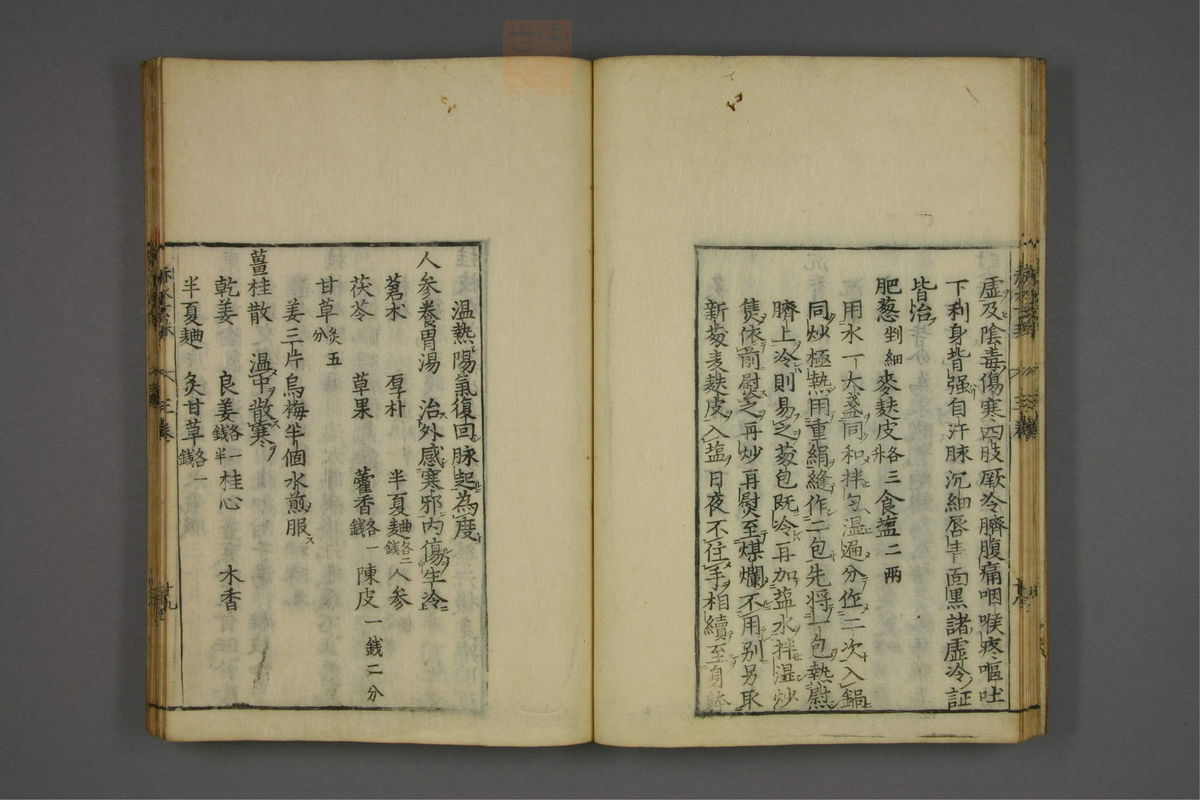 虚及陰毒傷寒四肢厥冷臍腹痛咽喉疼嘔吐
下利身背强自汗脉沉細唇青面黒諸虚冷証
皆治
肥葱剉細麥麩皮各三升食塩二兩
用水一大盞同和拌匀湿遍分作二次入鍋
同炒極熱用重絹縫作二包先將一包熱慰
臍上冷則易之葱包既冷再加塩水拌湿炒
焦依前慰之再炒再熨至煤爛不用别另取
新葱麦麩皮入塩日夜不住手相續至身體
温熱陽氣復回脉起為度
人参養胃湯 治外感寒邪内傷生冷
茗朮 厚朴 半夏麯各二錢 人参
茯苓 草果 藿香各一錢 陳皮一錢二分
甘草炙五分
姜三片烏梅半個水煎服
薑桂散 温中散寒
乾姜 良姜各一錢半 桂心 木香
半夏麯 炙甘草各一錢
三巻
三巻
十九